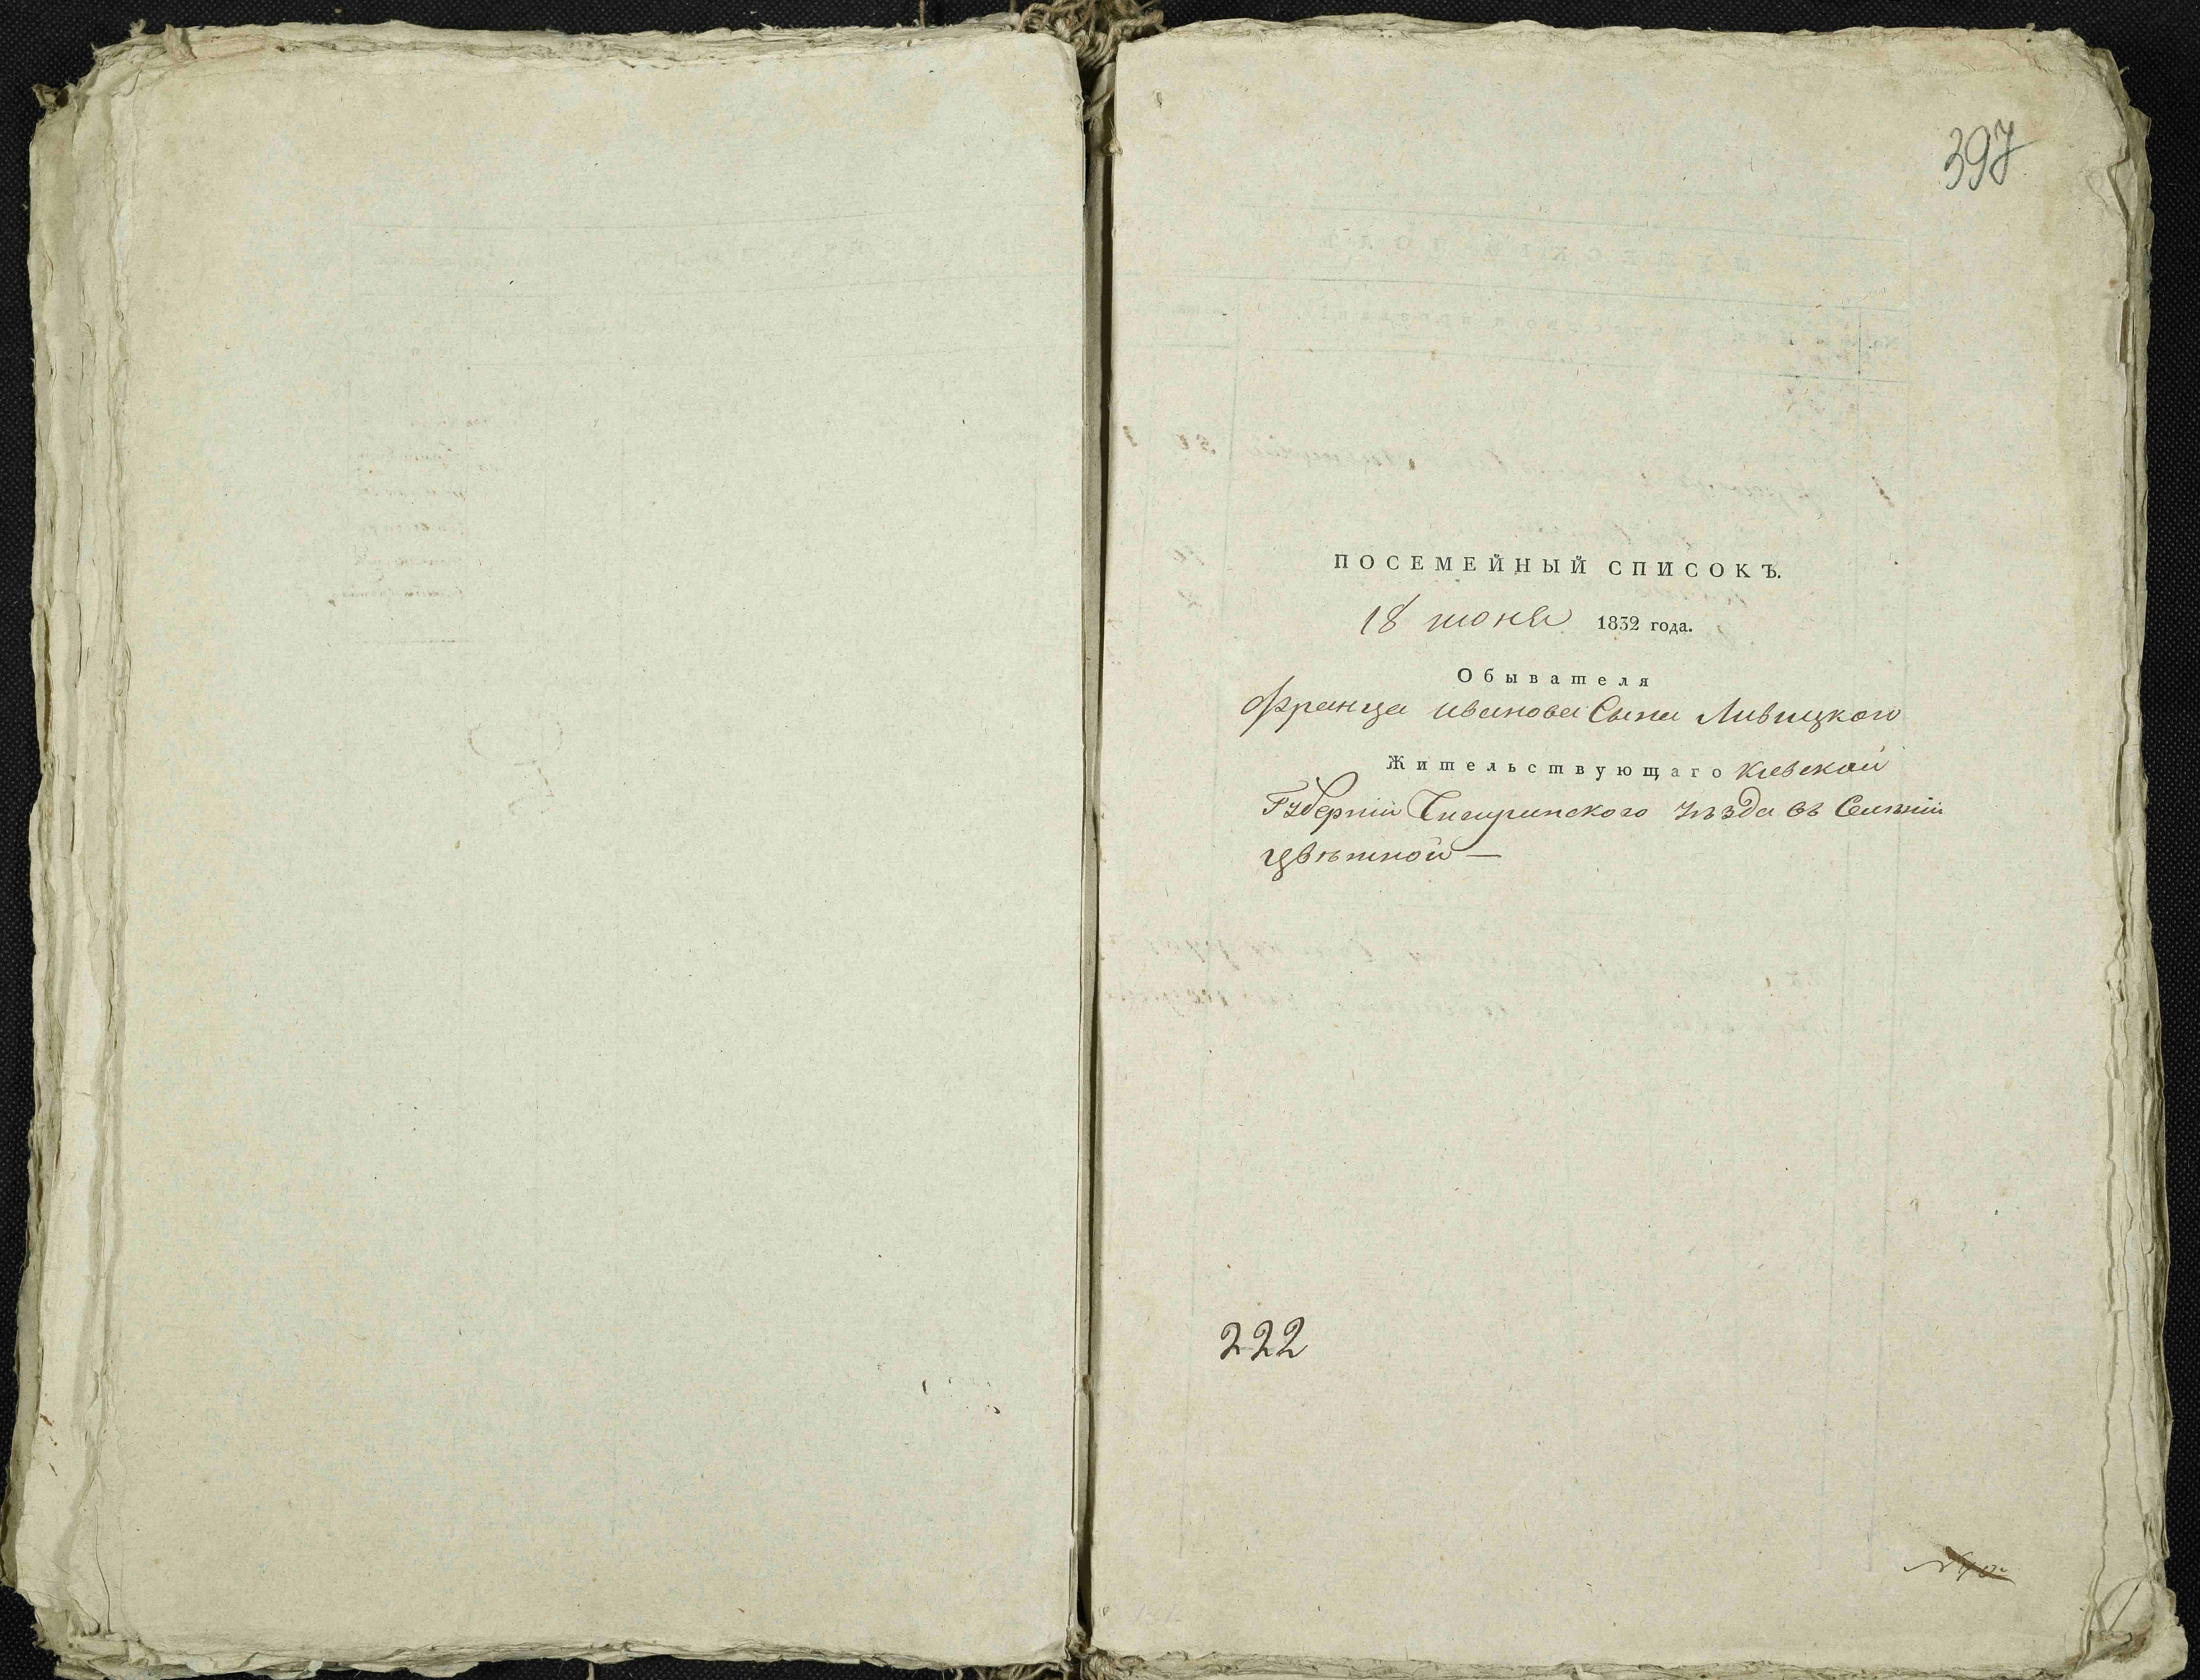 397
ПОСЕМЕЙНЫЙ СПИСОКЪ.
18 июня 1832 года.
Обывателя
Франца Иванова Сына Ливицкого
Жительствующаго Киевской
Губернии Чигиринского уѣзда въ
Цвѣтной —
222